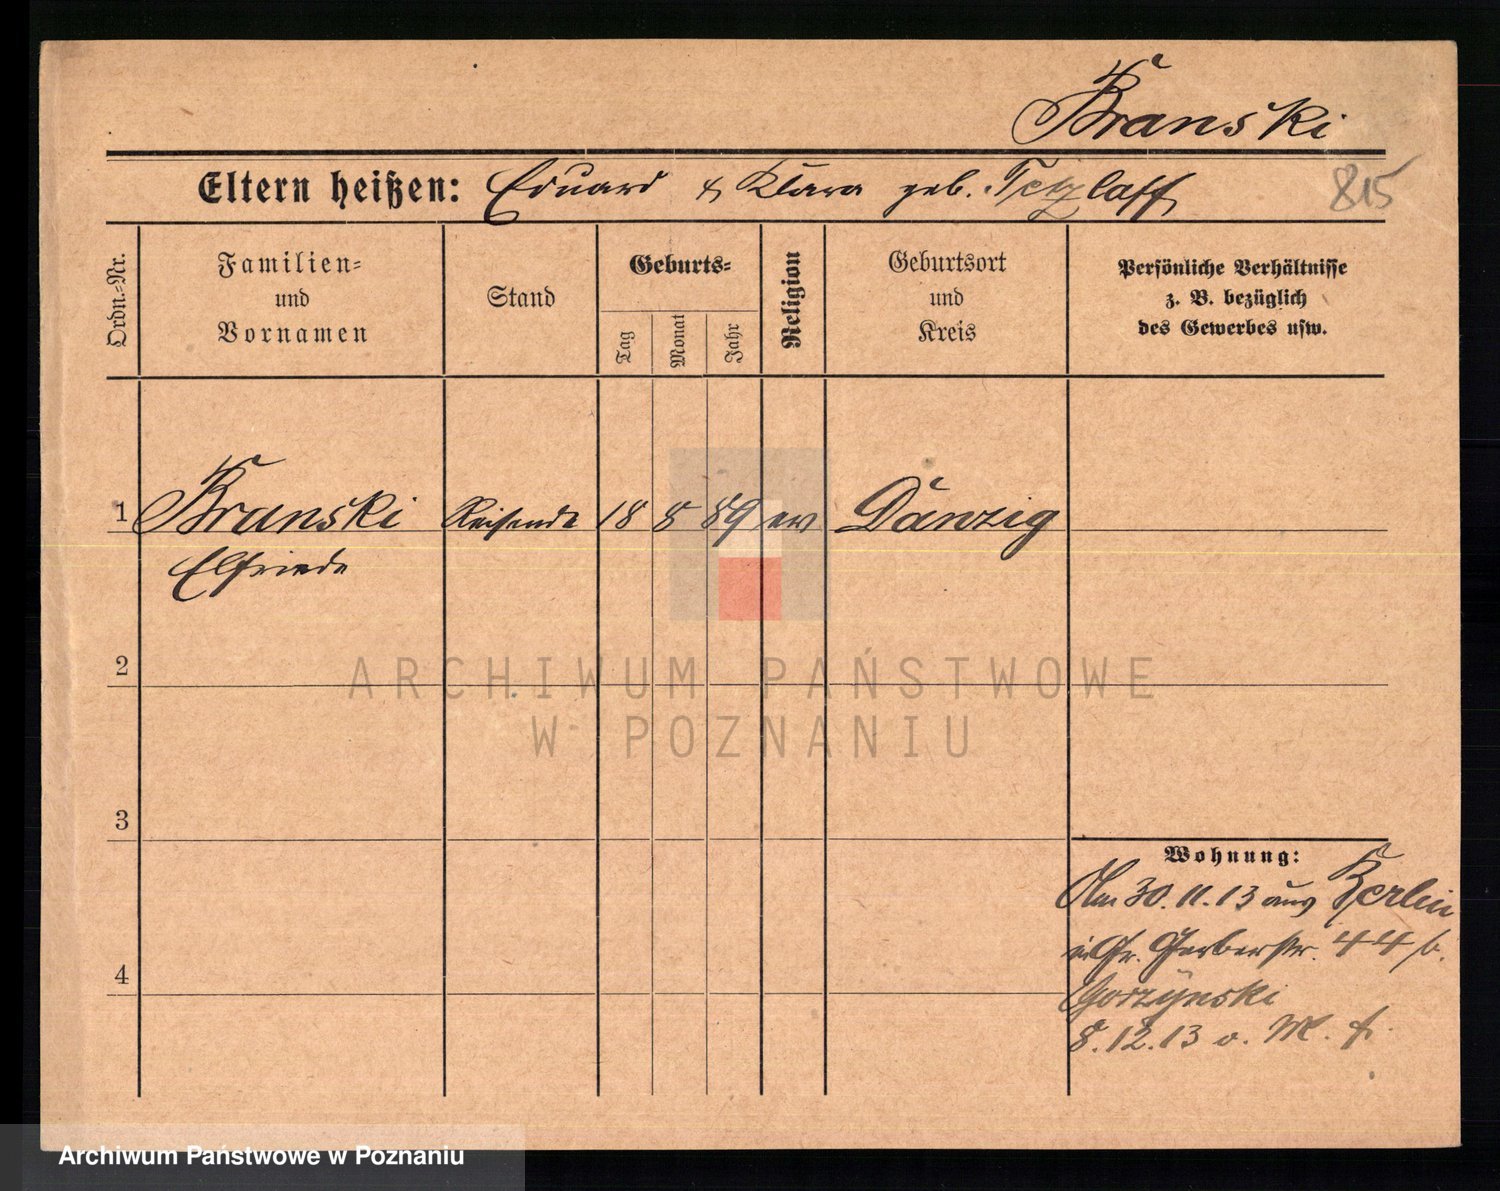 Branski
Eltern heißen: Eduard & Klara geb. Tetzlaff
815
Ordn.=Nr.
Familien=
und
Vornamen
Stand
Geburts=
Tag
Monat
Jahr
Religion
Geburtsort
und
Kreis
Persönliche Verhältnisse
z. B. bezüglich
des Gewerbes usw.
1 Branski Reisende 18 8 89 ev Danzig
Elfriede
2
ARCHIWUM PAŃSTWOWE
W POZNANIU
3
Wohnung:
Am 30.11.13 aus Berlin
Gr. Gerberstr. 44 b.
4
Gorzynski
8.12.13 o. M. f.
Archiwum Państwowe w Poznaniu